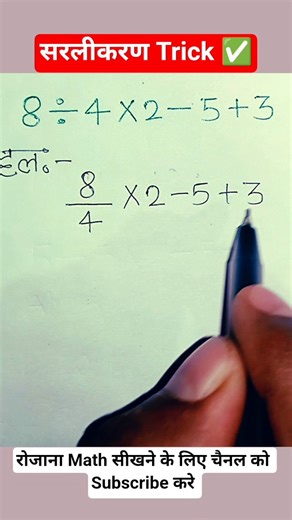 सरलीकरण Trick ✅
8÷4×2-5+3
हल:-
8/4 ×2-5+3
रोजाना Math सीखने के लिए चैनल को
Subscribe करे